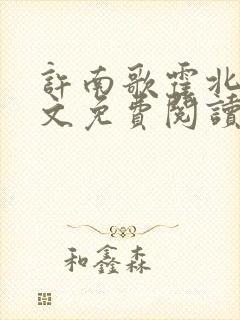 許南歌霍北
文免費閱讀
和鑫森